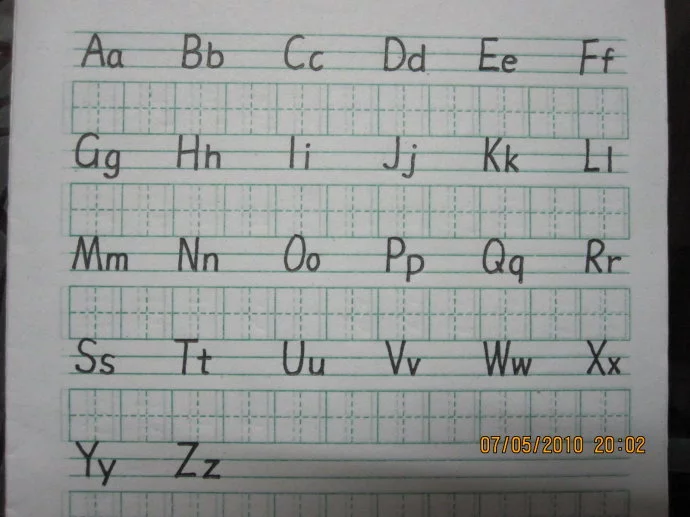 Aa Bb Cc Dd Ee Ff
Gg Hh Ii Jj Kk Ll
Mm Nn Oo Pp Qq Rr
Ss Tt Uu Vv Ww Xx
07/05/2010 20:02
Yy Zz